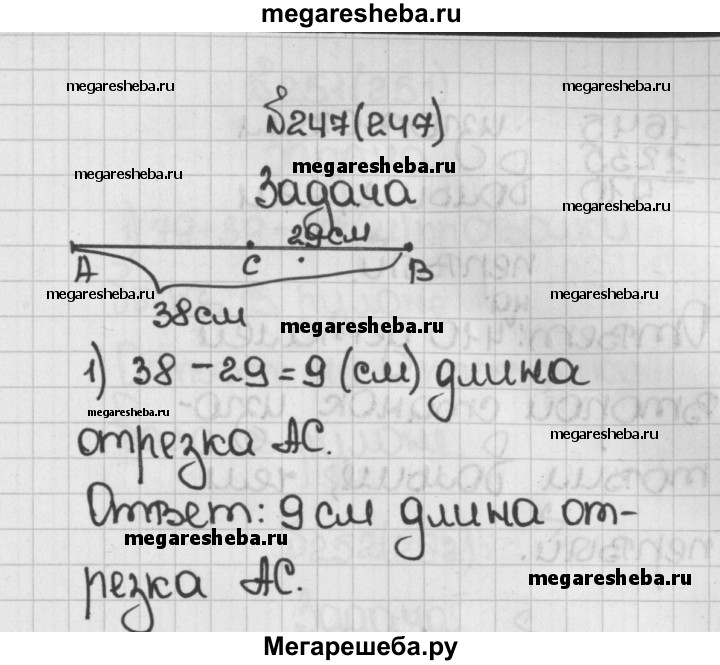 megaresheba.ru
megaresheba.ru
megaresheba.ru
№247(247)
megaresheba.ru
megaresheba.ru
Задача
megaresheba.ru
29см
A C B
megaresheba.ru
megaresheba.ru
38см
megaresheba.ru
1) 38-29=9 (см) длина
megaresheba.ru
отрезка АС.
megaresheba.ru
Ответ: 9 см длина от-
megaresheba.ru
резка АС.
megaresheba.ru
Мегарешеба.ру